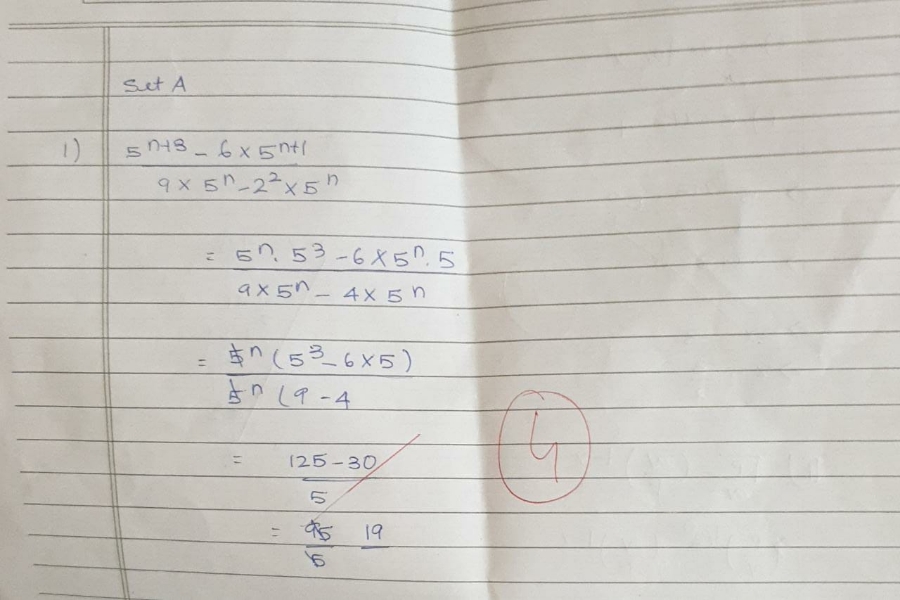 Set A
1) 5^{n+3} - 6 × 5^{n+1}
9 × 5^n - 2^2 × 5^n
= 5^n . 5^3 - 6 × 5^n . 5
9 × 5^n - 4 × 5^n
= 5^n (5^3 - 6 × 5)
5^n (9 - 4
= 125 - 30
5
= 95 19
5
4